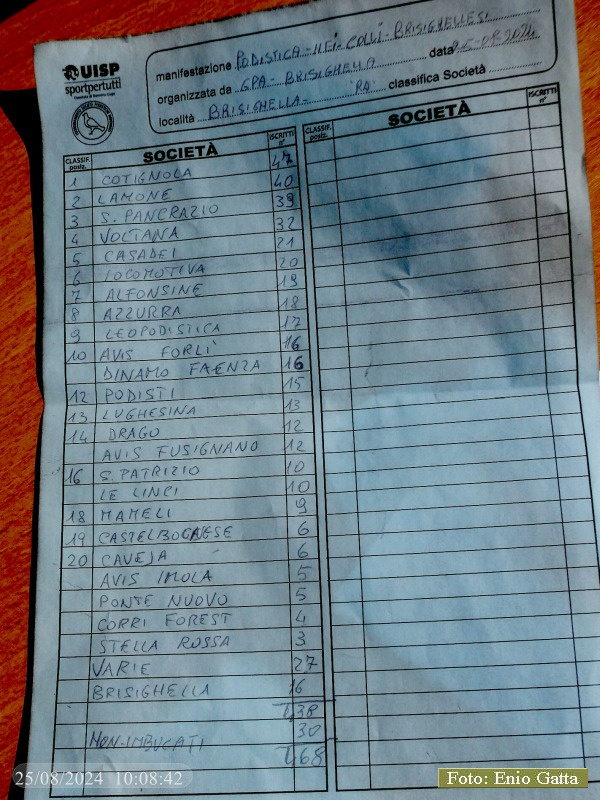 UISP
sportpertutti
manifestazione PODISTICA - NEI - COLLI - BRISIGHELLESI
organizzata da GPA - BRISIGHELLA data 25-08-2024
località BRISIGHELLA RA classifica Società
CLASSIF. posiz. SOCIETÀ ISCRITTI n° CLASSIF. posiz. SOCIETÀ ISCRITTI n°
1 COTIGNOLA 47
2 LAMONE 40
3 S. PANCRAZIO 39
4 VOLTANA 32
5 CASADEI 21
6 LOCOMOTIVA 20
7 ALFONSINE 19
8 AZZURRA 18
9 LEOPODISTICA 17
10 AVIS FORLÌ 16
DINAMO FAENZA 16
12 PODISTI 15
13 LUGHESINA 13
14 DRAGO 12
AVIS FUSIGNANO 12
16 S. PATRIZIO 10
LE LINCI 10
18 MAMELI 9
19 CASTELBOGNESE 6
20 CAVEJA 6
AVIS IMOLA 5
PONTE NUOVO 5
CORRI FOREST 4
STELLA ROSSA 3
VARIE 27
BRISIGHELLA 16
438
NON-IMBUCATI 30
468
25/08/2024 10:08:42
Foto: Enio Gatta